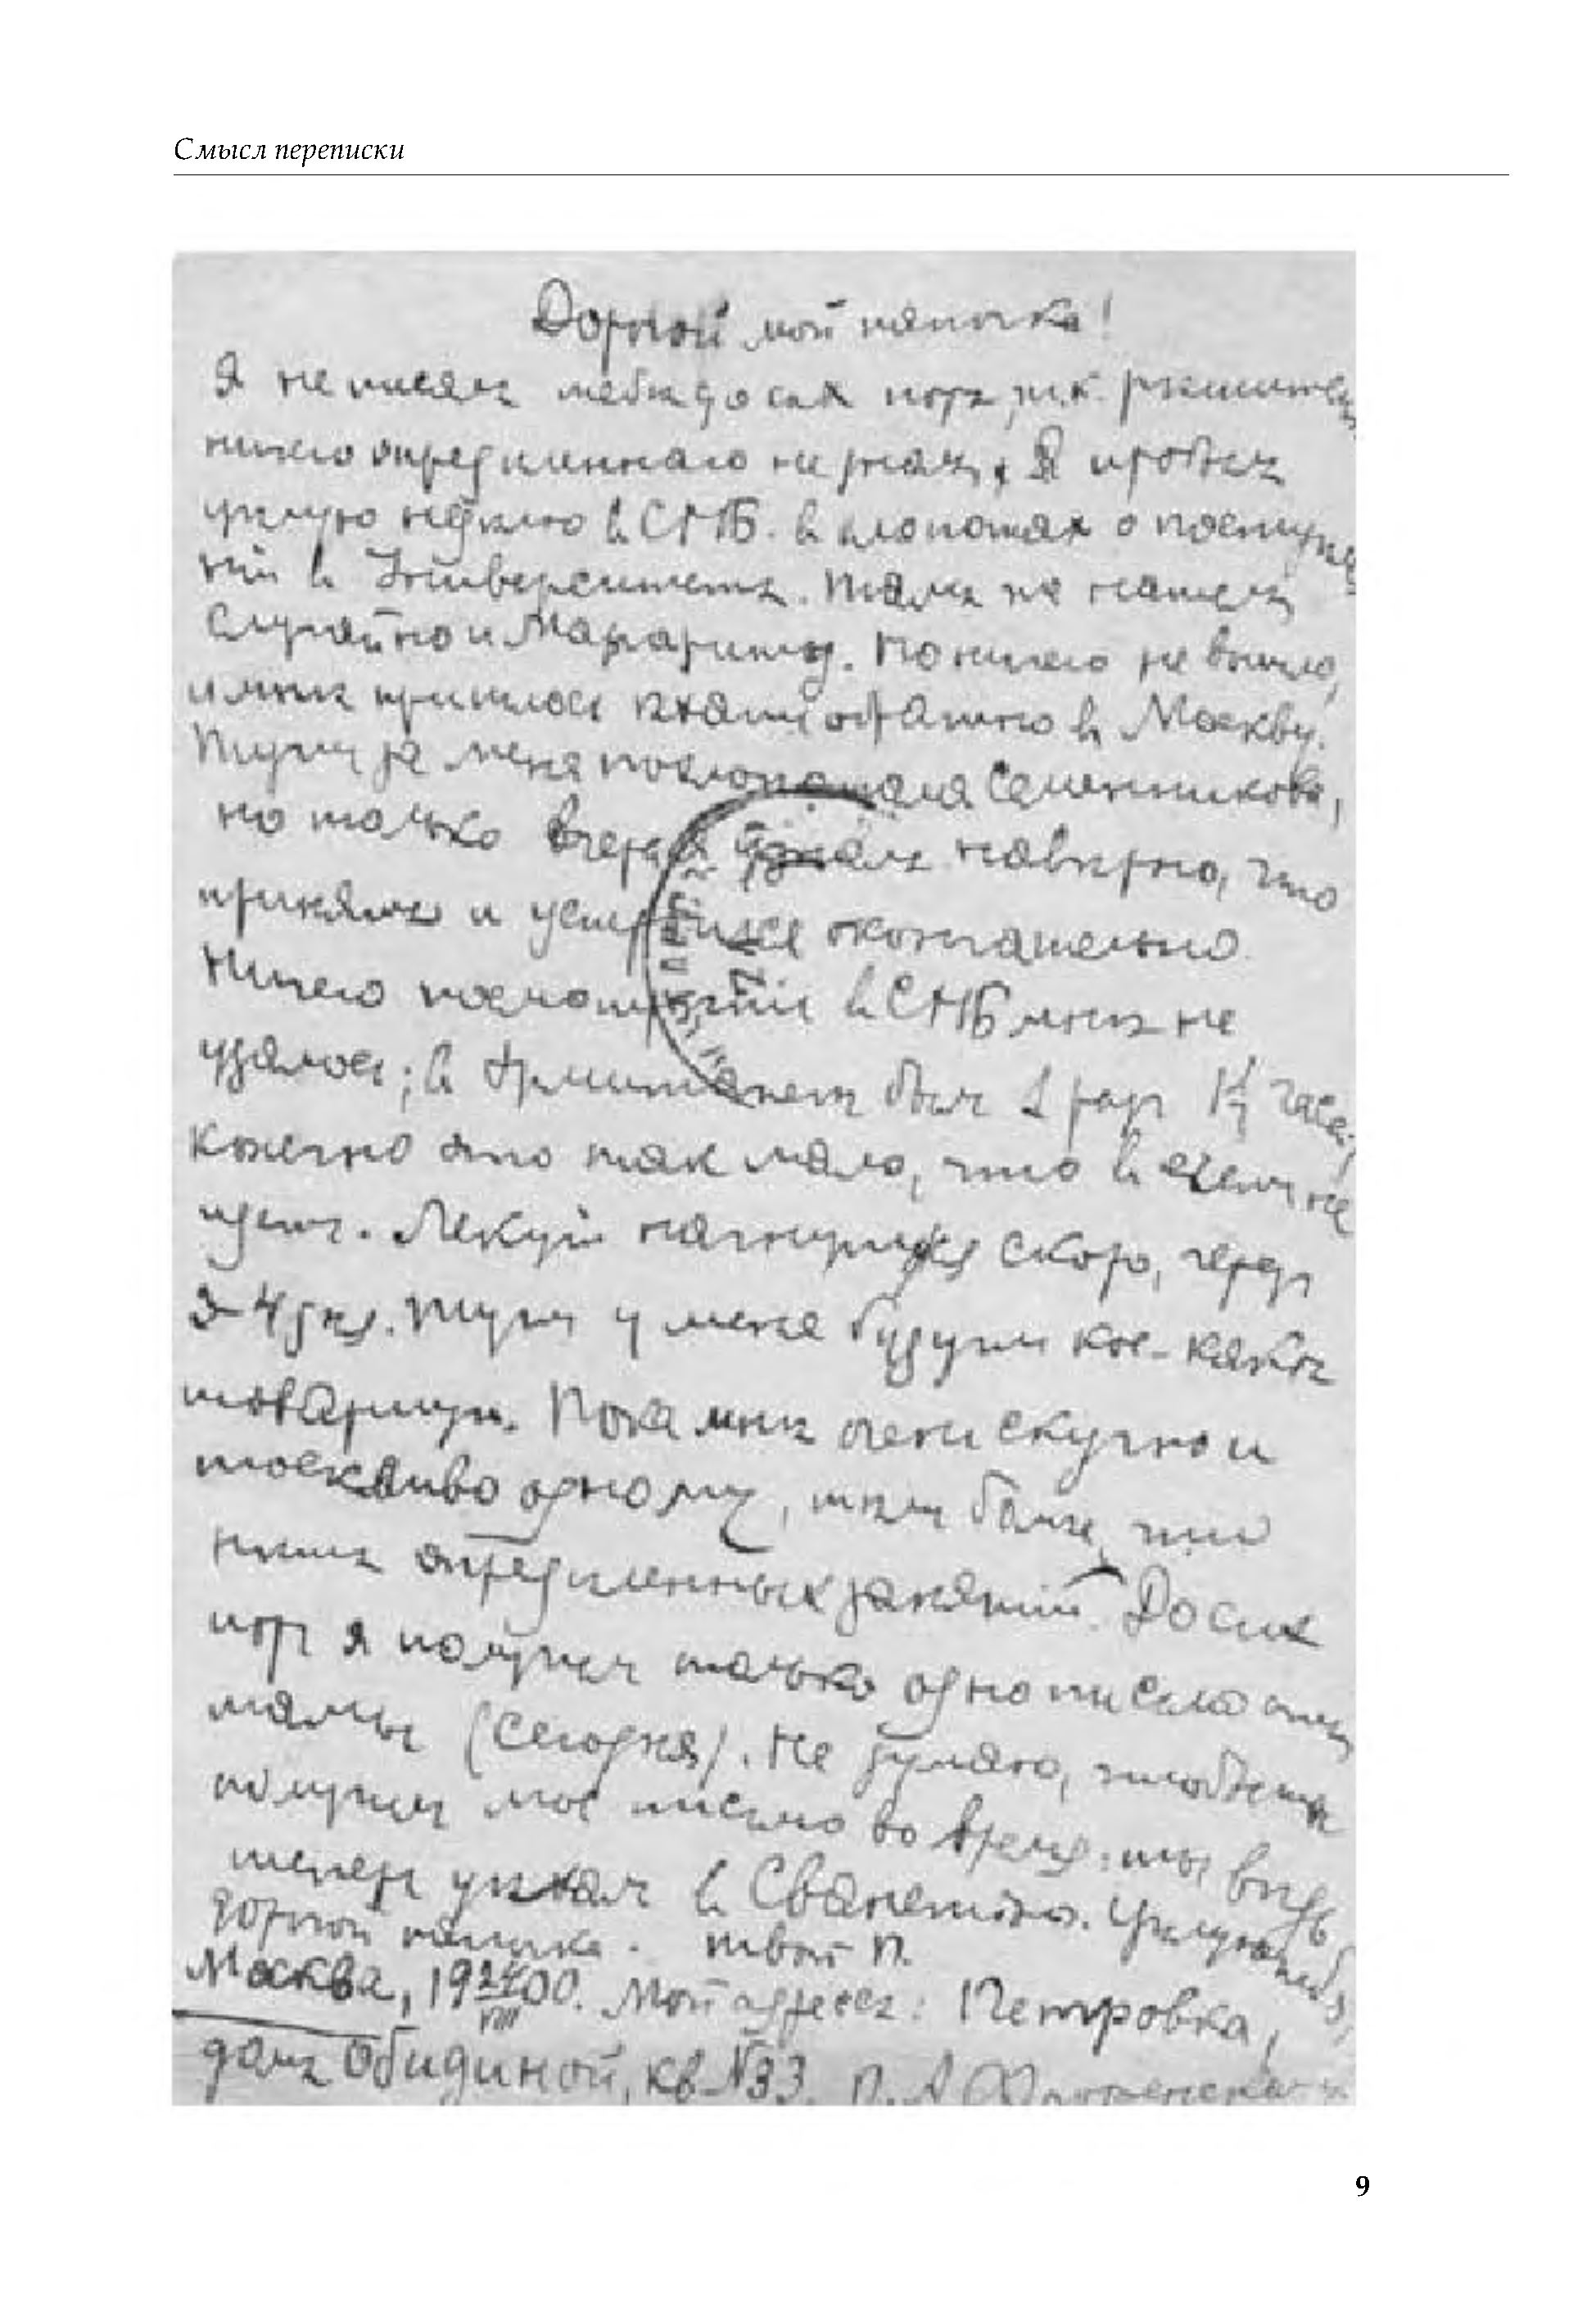 Смысл переписки
Дорогой мой папочка!
Я не писалъ тебѣ до сихъ поръ, т.к. рѣшительно
ничего опредѣленнаго не зналъ. Я пробылъ
цѣлую недѣлю въ СПБ. въ хлопотахъ о поступле
ніи въ Университетъ. Тамъ
случайно и Маргариту. Но ничего не вышло,
и мнѣ пришлось ѣхать обратно въ Москву.
Тутъ за меня похлопотала Семенникова,
но только вчера я узналъ навѣрно, что
принятъ и устроился окончательно.
Ничего посмотрѣть въ СПБ мнѣ не
удалось; въ Эрмитажѣ былъ 1 разъ 1½ часа,
конечно это такъ мало, что въ счетъ не
идетъ. Лекціи начнутся скоро, черезъ
3-4 дня. Тутъ у меня будутъ кое-какіе
товарищи. Пока мнѣ очень скучно и
тоскливо одному, тѣмъ болѣе, что
нѣтъ опредѣленныхъ занятій. До сихъ
поръ я получилъ только одно письмо отъ
мамы (сегодня). Не думаю, чтобы ты
получилъ мое письмо во время: ты вѣдь
теперь уѣхалъ въ Сванетію. Цѣлую тебя,
дорогой папочка. твой П.
Москва, 19 24/VIII 00. Мой адресъ: Петровка,
домъ Обидиной, кв. №33. П. А. Флоренскому
9